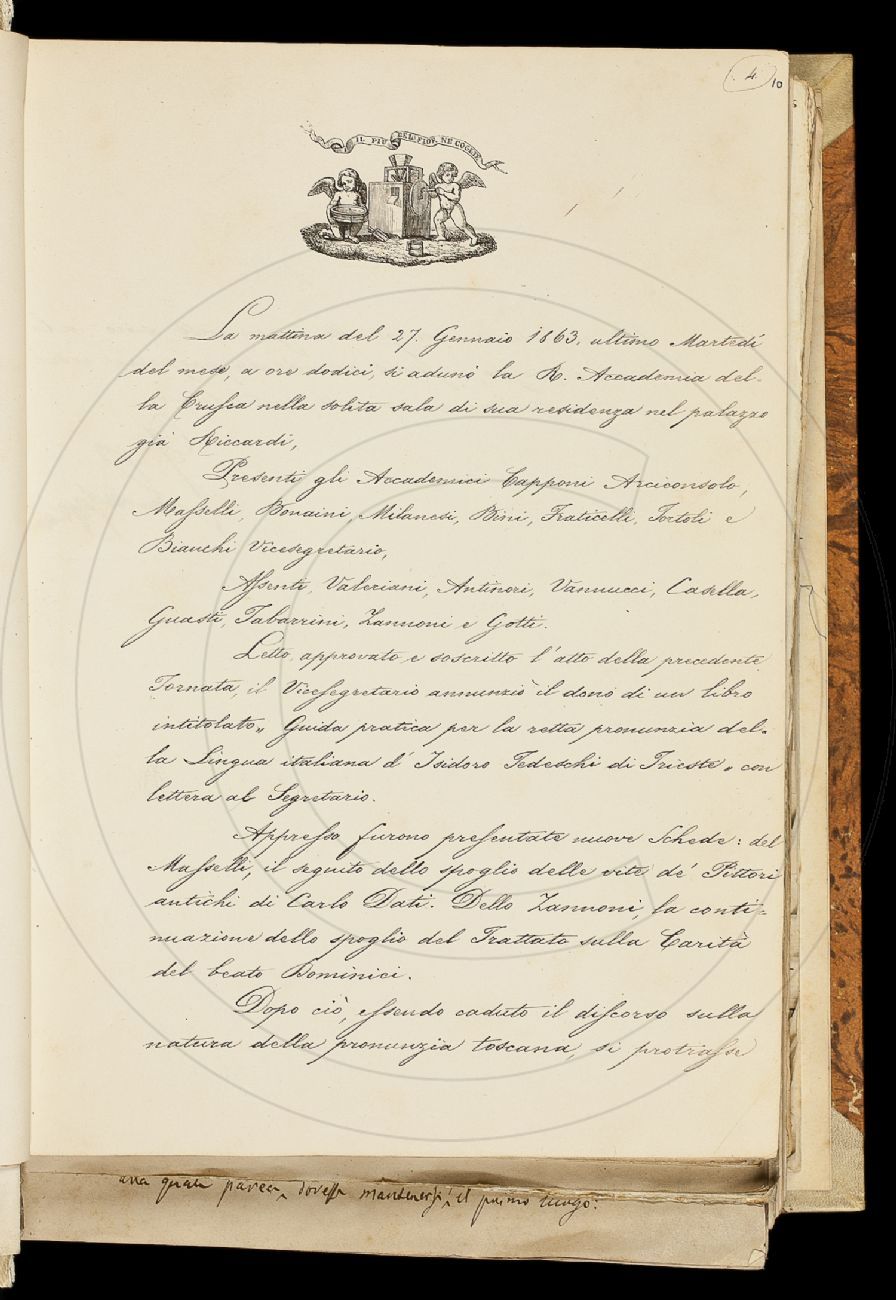 4
10
IL PIÙ BEL FIOR NE COGLIE
La mattina del 27. Gennaio 1863, ultimo Martedì
del mese, a ore dodici, si adunò la R. Accademia del-
la Crusca nella solita sala di sua residenza nel palazzo
già Riccardi,
Presenti gli Accademici Capponi Arciconsolo,
Masselli, Bonaini, Milanesi, Bini, Fraticelli, Tortoli e
Bianchi Vicesegretario,
Assenti, Valeriani, Antinori, Vannucci, Casella,
Guasti, Tabarrini, Zannoni e Gotti.
Letto, approvato e soscritto l'atto della precedente
Tornata, il Vicesegretario annunziò il dono di un libro
intitolato „ Guida pratica per la retta pronunzia del-
la Lingua italiana d' Isidoro Tedeschi di Trieste „ con
lettera al Segretario.
Appresso furono presentate nuove Schede: del
Masselli, il seguito dello spoglio delle vite de' Pittori
antichi di Carlo Dati. Dello Zannoni, la conti-
nuazione dello spoglio del Trattato sulla Carità
del beato Dominici.
Dopo ciò, essendo caduto il discorso sulla
natura della pronunzia toscana, si protrasse
alla quale parea dovesse mantenersi il primo luogo: